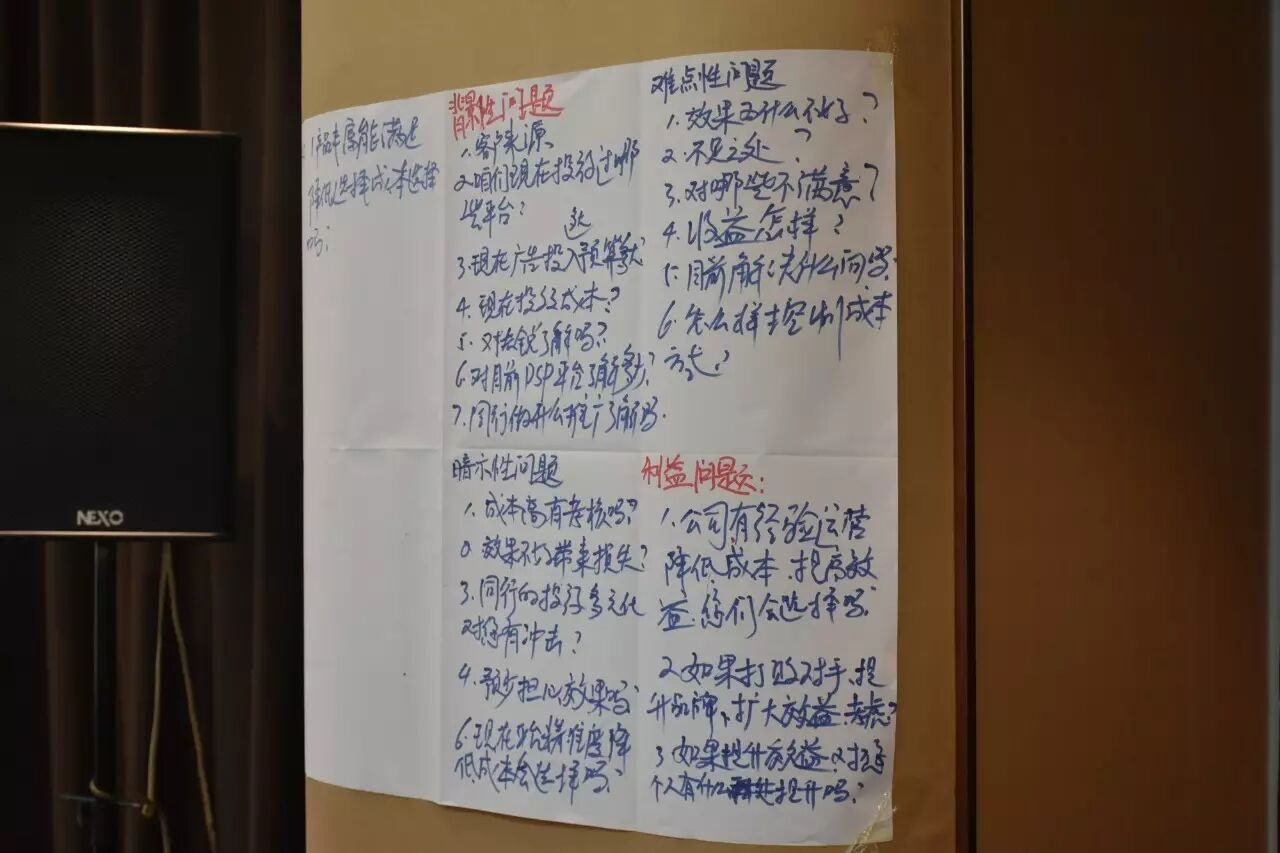 降低选择成本选择
吗?
背景性问题
1.客户来源
2.咱们现在投放过哪
些平台?
3.现在广告投入预算
4.现在投放成本?
5.对 了解吗?
6.对目前DSP平台了解多少?
7.同行做什么推广了解吗
难点性问题
1.效果为什么不好?
2.不足之处?
3.对哪些不满意?
4.收益怎样?
5.目前解决什么问题
6.怎么样控制成本
方式?
暗示性问题
1.成本高有考核吗?
效果不好带来损失?
3.同行的投放多元化
对您有冲击?
4. 担心效果吗
6.现在 精准度降
低成本会选择吗?
利益问题:
1.公司有经验运营
降低成本、提高效
益.您们会选择吗
2.如果打败对手、提
升品牌、扩大效益.考虑?
3.如果提升效益、对
个人有什么 提升吗?
NEXO